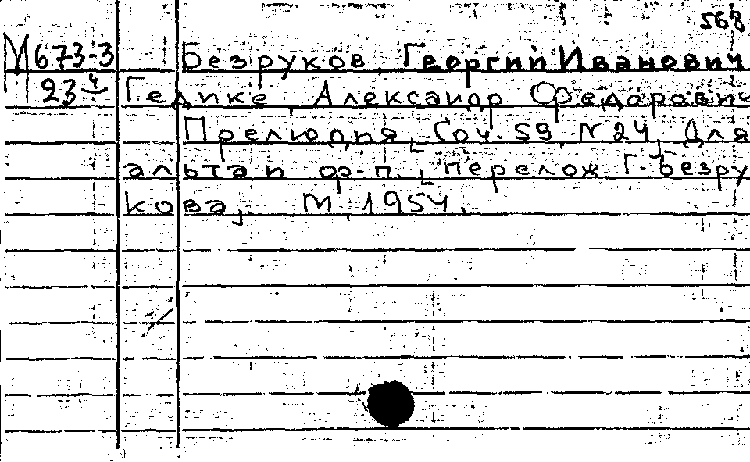 568
М673-3 Безруков, Георгий Иванович
23ч Гедике, Александр Федорович
Прелюдия, Соч. 59, N 24, Для
альта и ф-п., перелож. Г. Безру
кова, М, 1954.